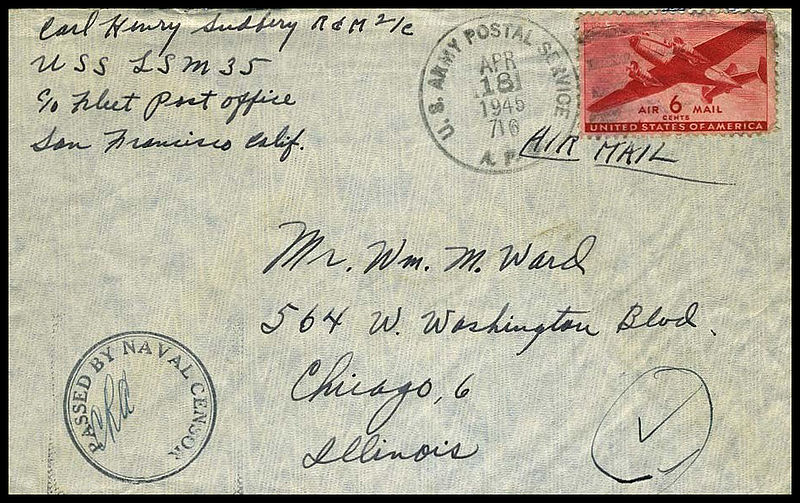 Carl Henry Sudbery RdM 2/c
USS LSM 35
c/o Fleet Post office
San Francisco Calif.
U.S. ARMY POSTAL SERVICE
APR
18
1945
716
A. P.
AIR 6 MAIL
CENTS
UNITED STATES OF AMERICA
AIR MAIL
Mr. Wm. M. Ward
564 W. Washington Blvd.
Chicago, 6
Illinois
PASSED BY NAVAL CENSOR